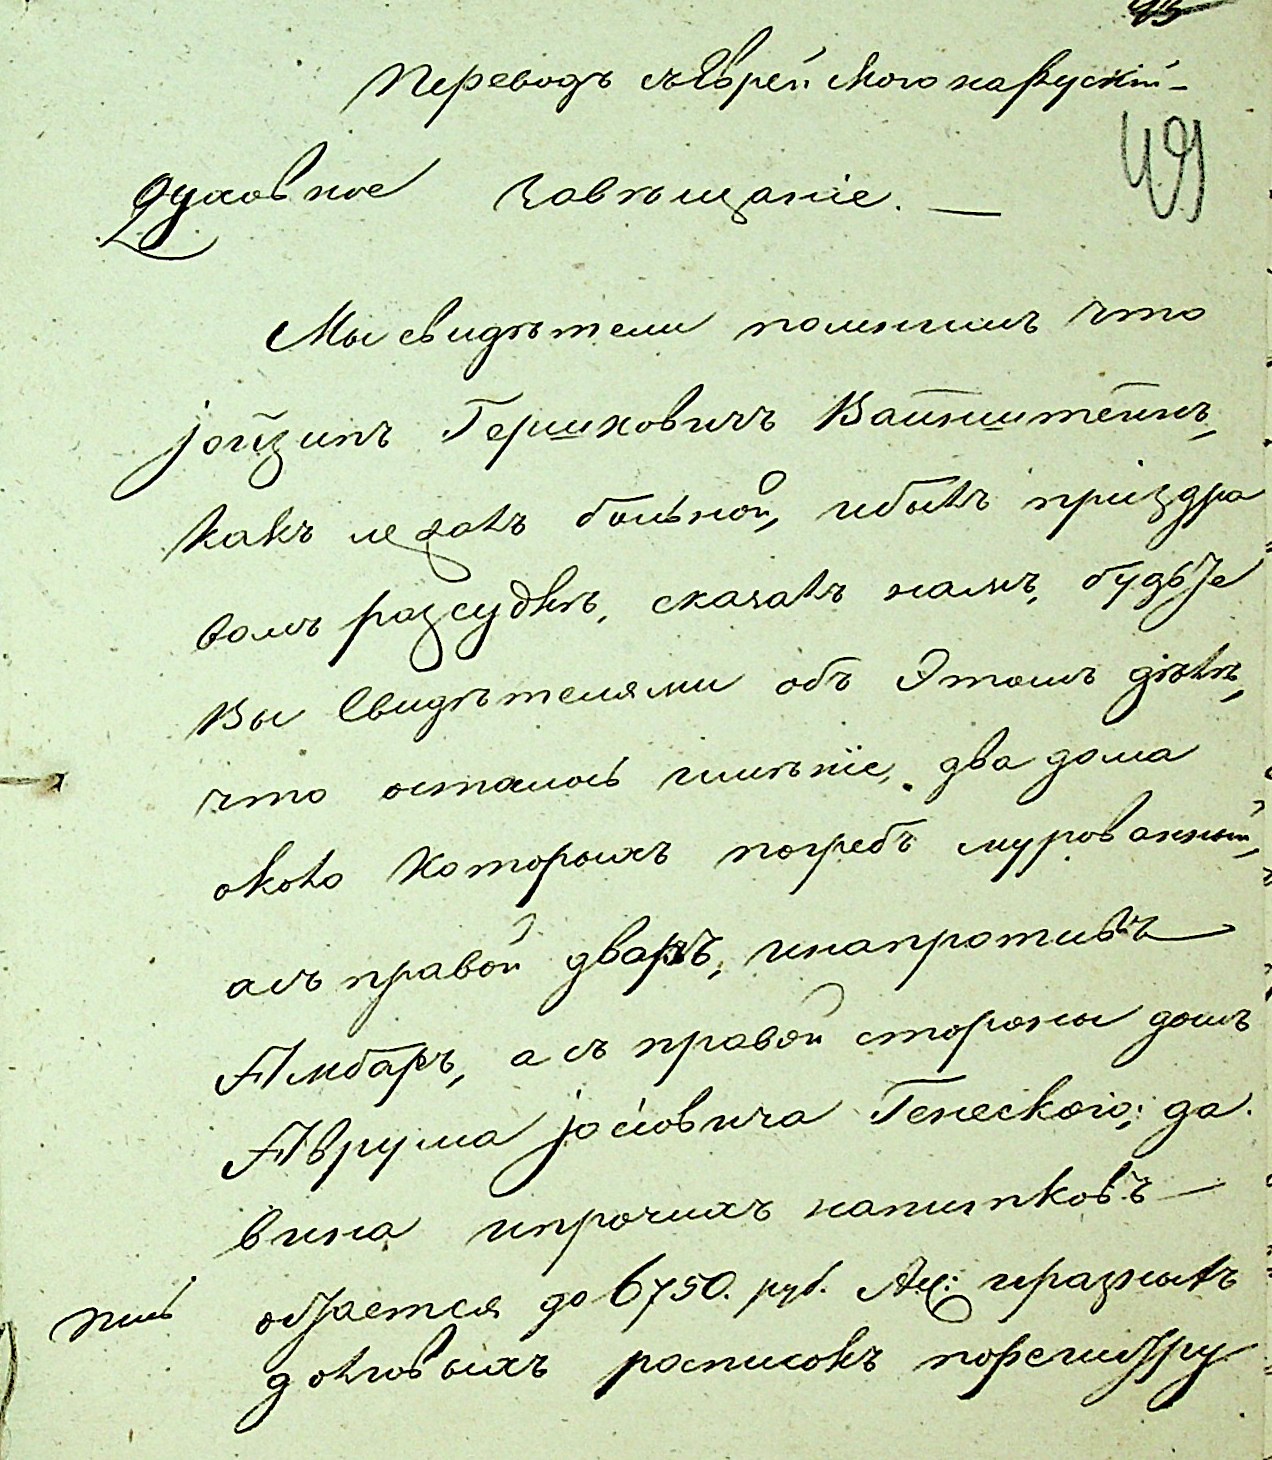 Переводъ съ Еврейского на Рускій
49
Духовное Завѣщаніе. —
Мы свидѣтели помнимъ что
Іойзипъ Гершковичъ Вайнштейнъ,
какъ лежалъ больной, и былъ при здра
вомъ разсудкѣ, сказалъ намъ, будьте
Вы Свидѣтелями объ Этомъ дѣлѣ,
что осталось имѣніе, два дома
около которыхъ погребъ мурованный,
а съ правой дворъ, и напротивъ
Амбаръ, а съ правой стороны домъ
Аврума Іосіовича Генеского; да
вина и прочихъ напитковъ —
обтается до 6750. руб. Ас: и разныхъ
долговыхъ росписокъ по регистру